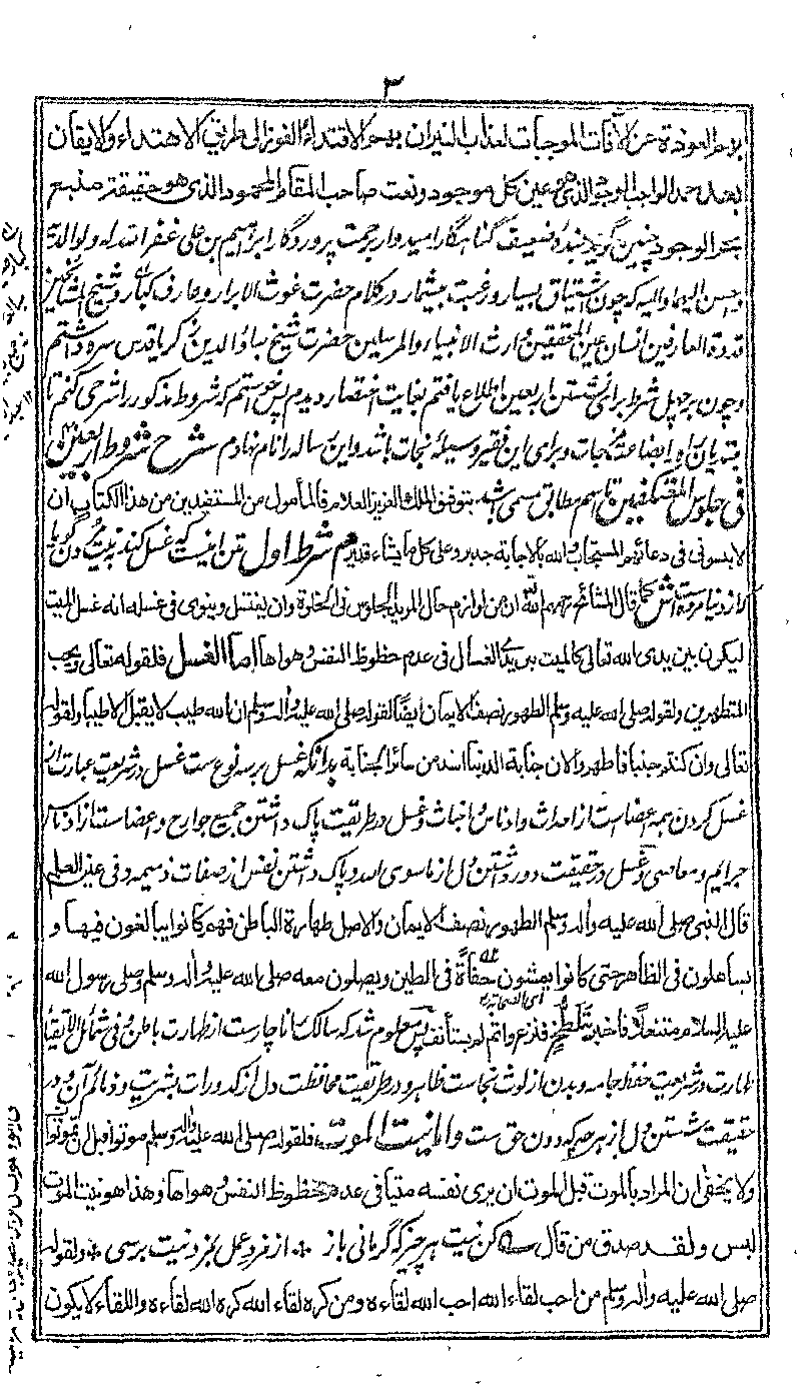 ٣
العوذة عن الآفات الموجبات لعذاب النيران بهم الاقتداء الفوز الى طريق الاهتداء والايقان
بعد حمد الواجب الوجود الذى هو عين كل موجود ونعت صاحب المقام المحمود الذى هو حقيقة منبع
الوجود چنين گويد بنده ضعيف گناهگار اميدوار برحمت پروردگار ابراهيم بن على غفر الله له ولوالديه
واحسن اليهما واليه كه چون اشتياق بسيار ورغبت بيشمار در كلام حضرت غوث الابرار وعارف كبار وشيخ المشايخ
قدوة العارفين انسان عين المحققين وارث الانبياء والمرسلين حضرت شيخ بهاؤ الدين زكريا قدس سره داشتم
وچون بر چهل شرط براى نشستن اربعين اطلاع يافتم بغايت اختصار ديدم پس خواستم كه شروط مذكور را شرحى كنم تا
مبتديان راه را بضاعة حاجات وبراى اين فقير وسيلهٔ نجات باشد واين رساله را نام نهادم شرح شروط اربعين
فى جلوس المعتكفين تا اسم مطابق مسمى باشد بتوفيق الملك العزيز العلام فالمأمول من المستفيدين من هذا الكتاب ان
لا ينسونى فى دعائهم المستجاب والله بالاجابة جدير وعلى كل ما يشاء قدير م شرط اول تن اينست كه غسل كند به نيت مردن گويا
كه از دنيا مرده است ش كما قال المشائخ رحمهم الله ان من لوازم حال المريد الجلوس فى الخلوة وان يغتسل وينوى فى غسله انه غسل الميت
ليكون بين يدى الله تعالى كالميت بين يدى الغسال فى عدم حظوظ النفس وهواها اما الغسل فلقوله تعالى ويحب
المتطهرين ولقوله صلى الله عليه وسلم الطهور نصف الايمان ايضا لقوله صلى الله عليه واله وسلم ان الله طيب لا يقبل الا طيبا ولقوله
تعالى وان كنتم جنبا فاطهروا لان جنابة الدنيا اشد من سائر الجنابة بدانكه غسل بر سه نوع ست غسل در شريعت عبارت از
غسل كردن همه اعضاست از احداث وادناس واخباث وغسل در طريقت پاك داشتن جميع جوارح واعضاست از ادناس
جرايم ومعاصى وغسل در حقيقت دور داشتن دل از ماسوى الله وپاك داشتن نفس از صفات ذميمه وفى عين العلم
قال النبى صلى الله عليه واله وسلم الطهور نصف الايمان والاصل طهارة الباطن فهم كانوا يبالغون فيها و
يساهلون فى الظاهر حتى كانوا يمشون حفاة فى الطين ويصلون معه صلى الله عليه واله وسلم وصلى رسول الله
عليه السلام متنعلا فاخبر بتلطخ فنزع واتم لم يستأنف پس معلوم شد كه سالك را ناچار ست از طهارت باطن وفى شمائل الاتقيا
طهارت در شريعت حفظ جامه وبدن از لوث نجاست ظاهر ودر طريقت محافظت دل از كدورات بشريت وذمائم آن ودر
حقيقت شستن دل از هر چه كه دون حق ست واما نيت الموت فلقوله صلى الله عليه واله وسلم موتوا قبل ان تموتوا
ولا يخفى ان المراد بالموت قبل الموت ان يرى نفسه ميتا فى عدم حظوظ النفس وهواها وهذا هو نيت الموت
ليس ولقد صدق من قال كن نيت هر چيز كه گرمانى باز * از فرد عمل بمزد نيت برسى * ولقوله
صلى الله عليه واله وسلم من احب لقاء الله احب الله لقاءه ومن كره لقاء الله كره الله لقاءه واللقاء لا يكون